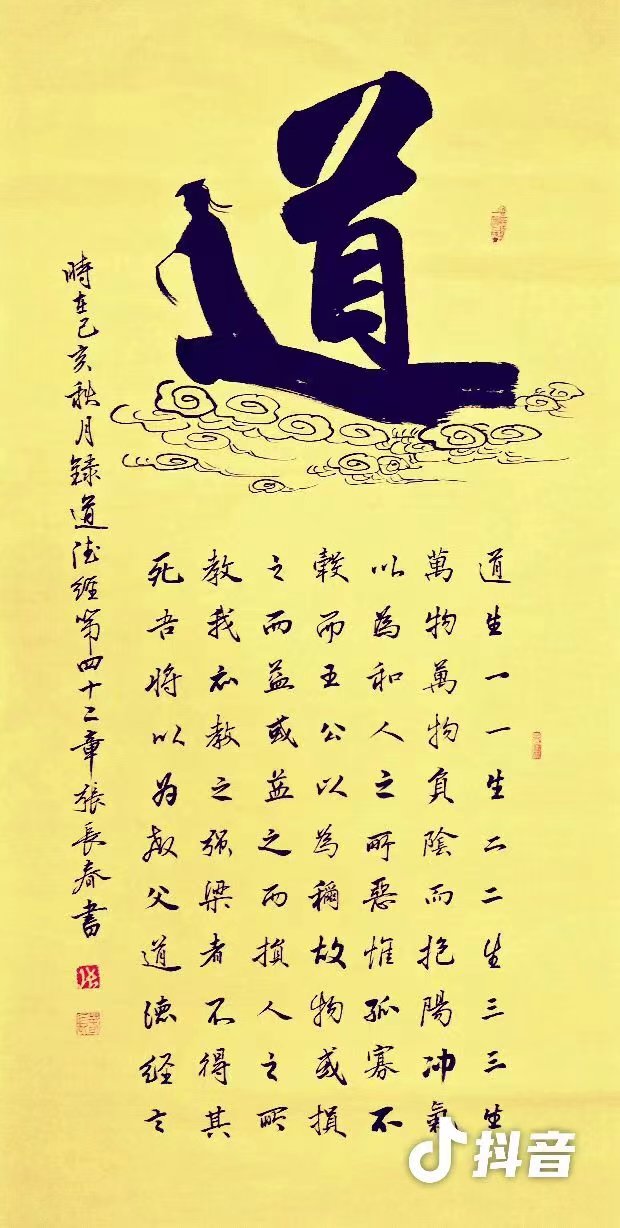 道
道生一一生二二生三三生
萬物萬物負陰而抱陽冲氣
以為和人之所惡惟孤寡不
穀而王公以為稱故物或損
之而益或益之而損人之所
教我亦教之强梁者不得其
死吾將以為教父道德經言
時在己亥秋月錄道德經第四十二章張長春書
抖音